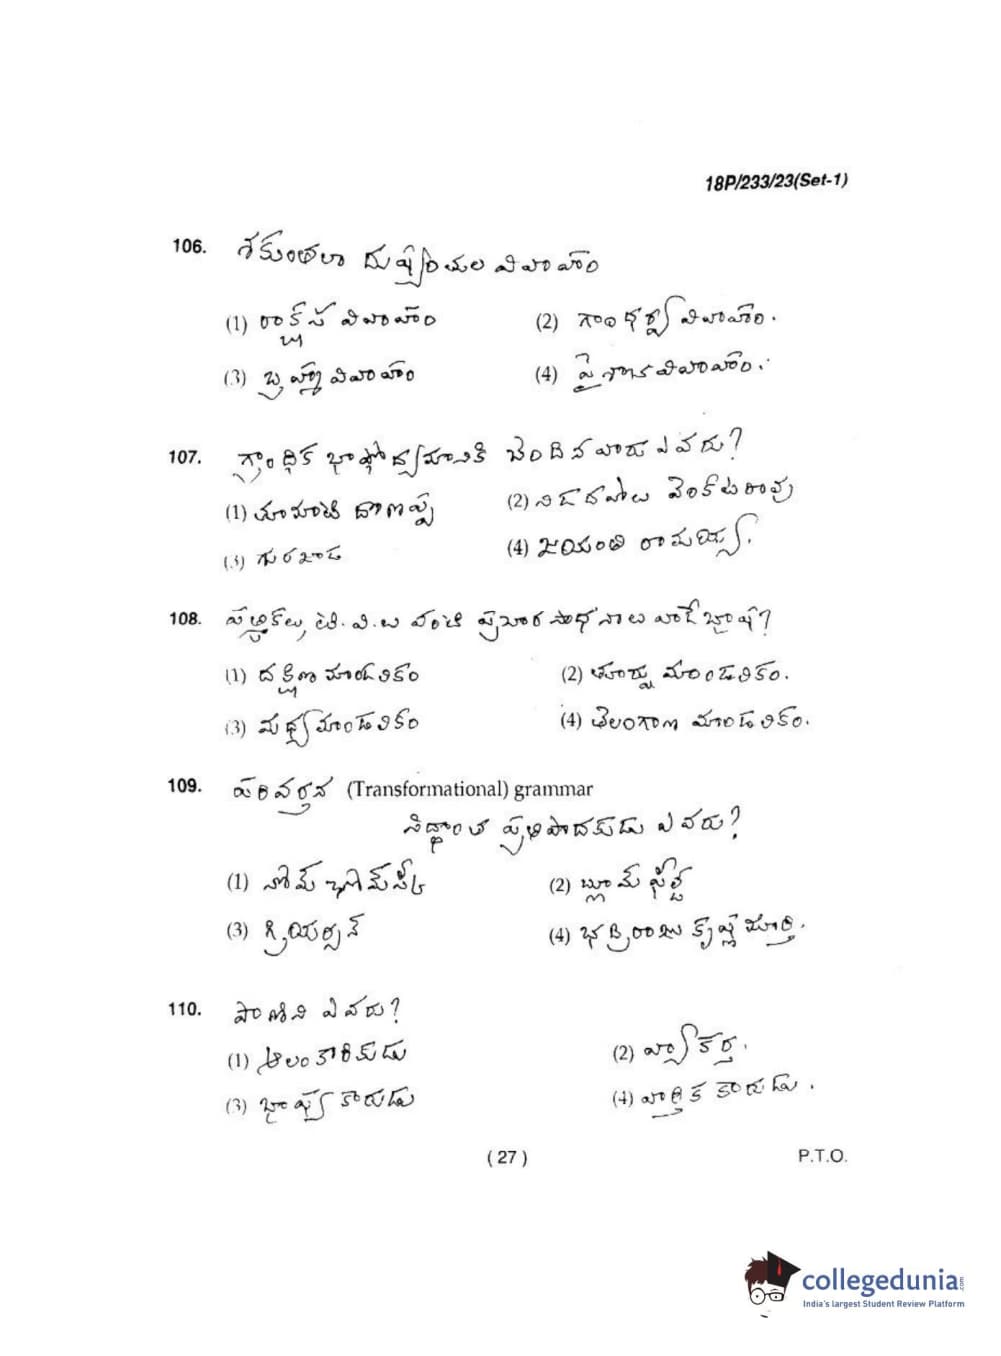 18P/233/23(Set-1)
106. శకుంతలా దుష్యంతుల వివాహం
(1) రాక్షస వివాహం (2) గాంధర్వ వివాహం.
(3) బ్రహ్మ వివాహం (4) పైశాచ వివాహం.
107. గ్రాంధిక భాషోద్యమానికి చెందినవారు ఎవరు?
(1) తూమాటి దొణప్ప (2) నిడదవోలు వెంకటరావు
(3) గురజాడ (4) జయంతి రామయ్య.
108. పత్రికలు, టి.వి.ల వంటి ప్రచార సాధనాలు వాడే భాష?
(1) దక్షిణ మాండలికం (2) తూర్పు మాండలికం.
(3) మధ్య మాండలికం (4) తెలంగాణ మాండలికం.
109. పరివర్తన (Transformational) grammar
సిద్ధాంత ప్రతిపాదకుడు ఎవరు?
(1) నోమ్ ఛామ్‌స్కీ (2) బ్లూమ్ ఫీల్డ్
(3) గ్రియర్సన్ (4) భద్రిరాజు కృష్ణమూర్తి.
110. పాణిని ఎవరు?
(1) ఆలంకారికుడు (2) వ్యాకర్త.
(3) భాష్యకారుడు (4) వార్తికకారుడు.
( 27 ) P.T.O.
collegedunia.com
India's largest Student Review Platform